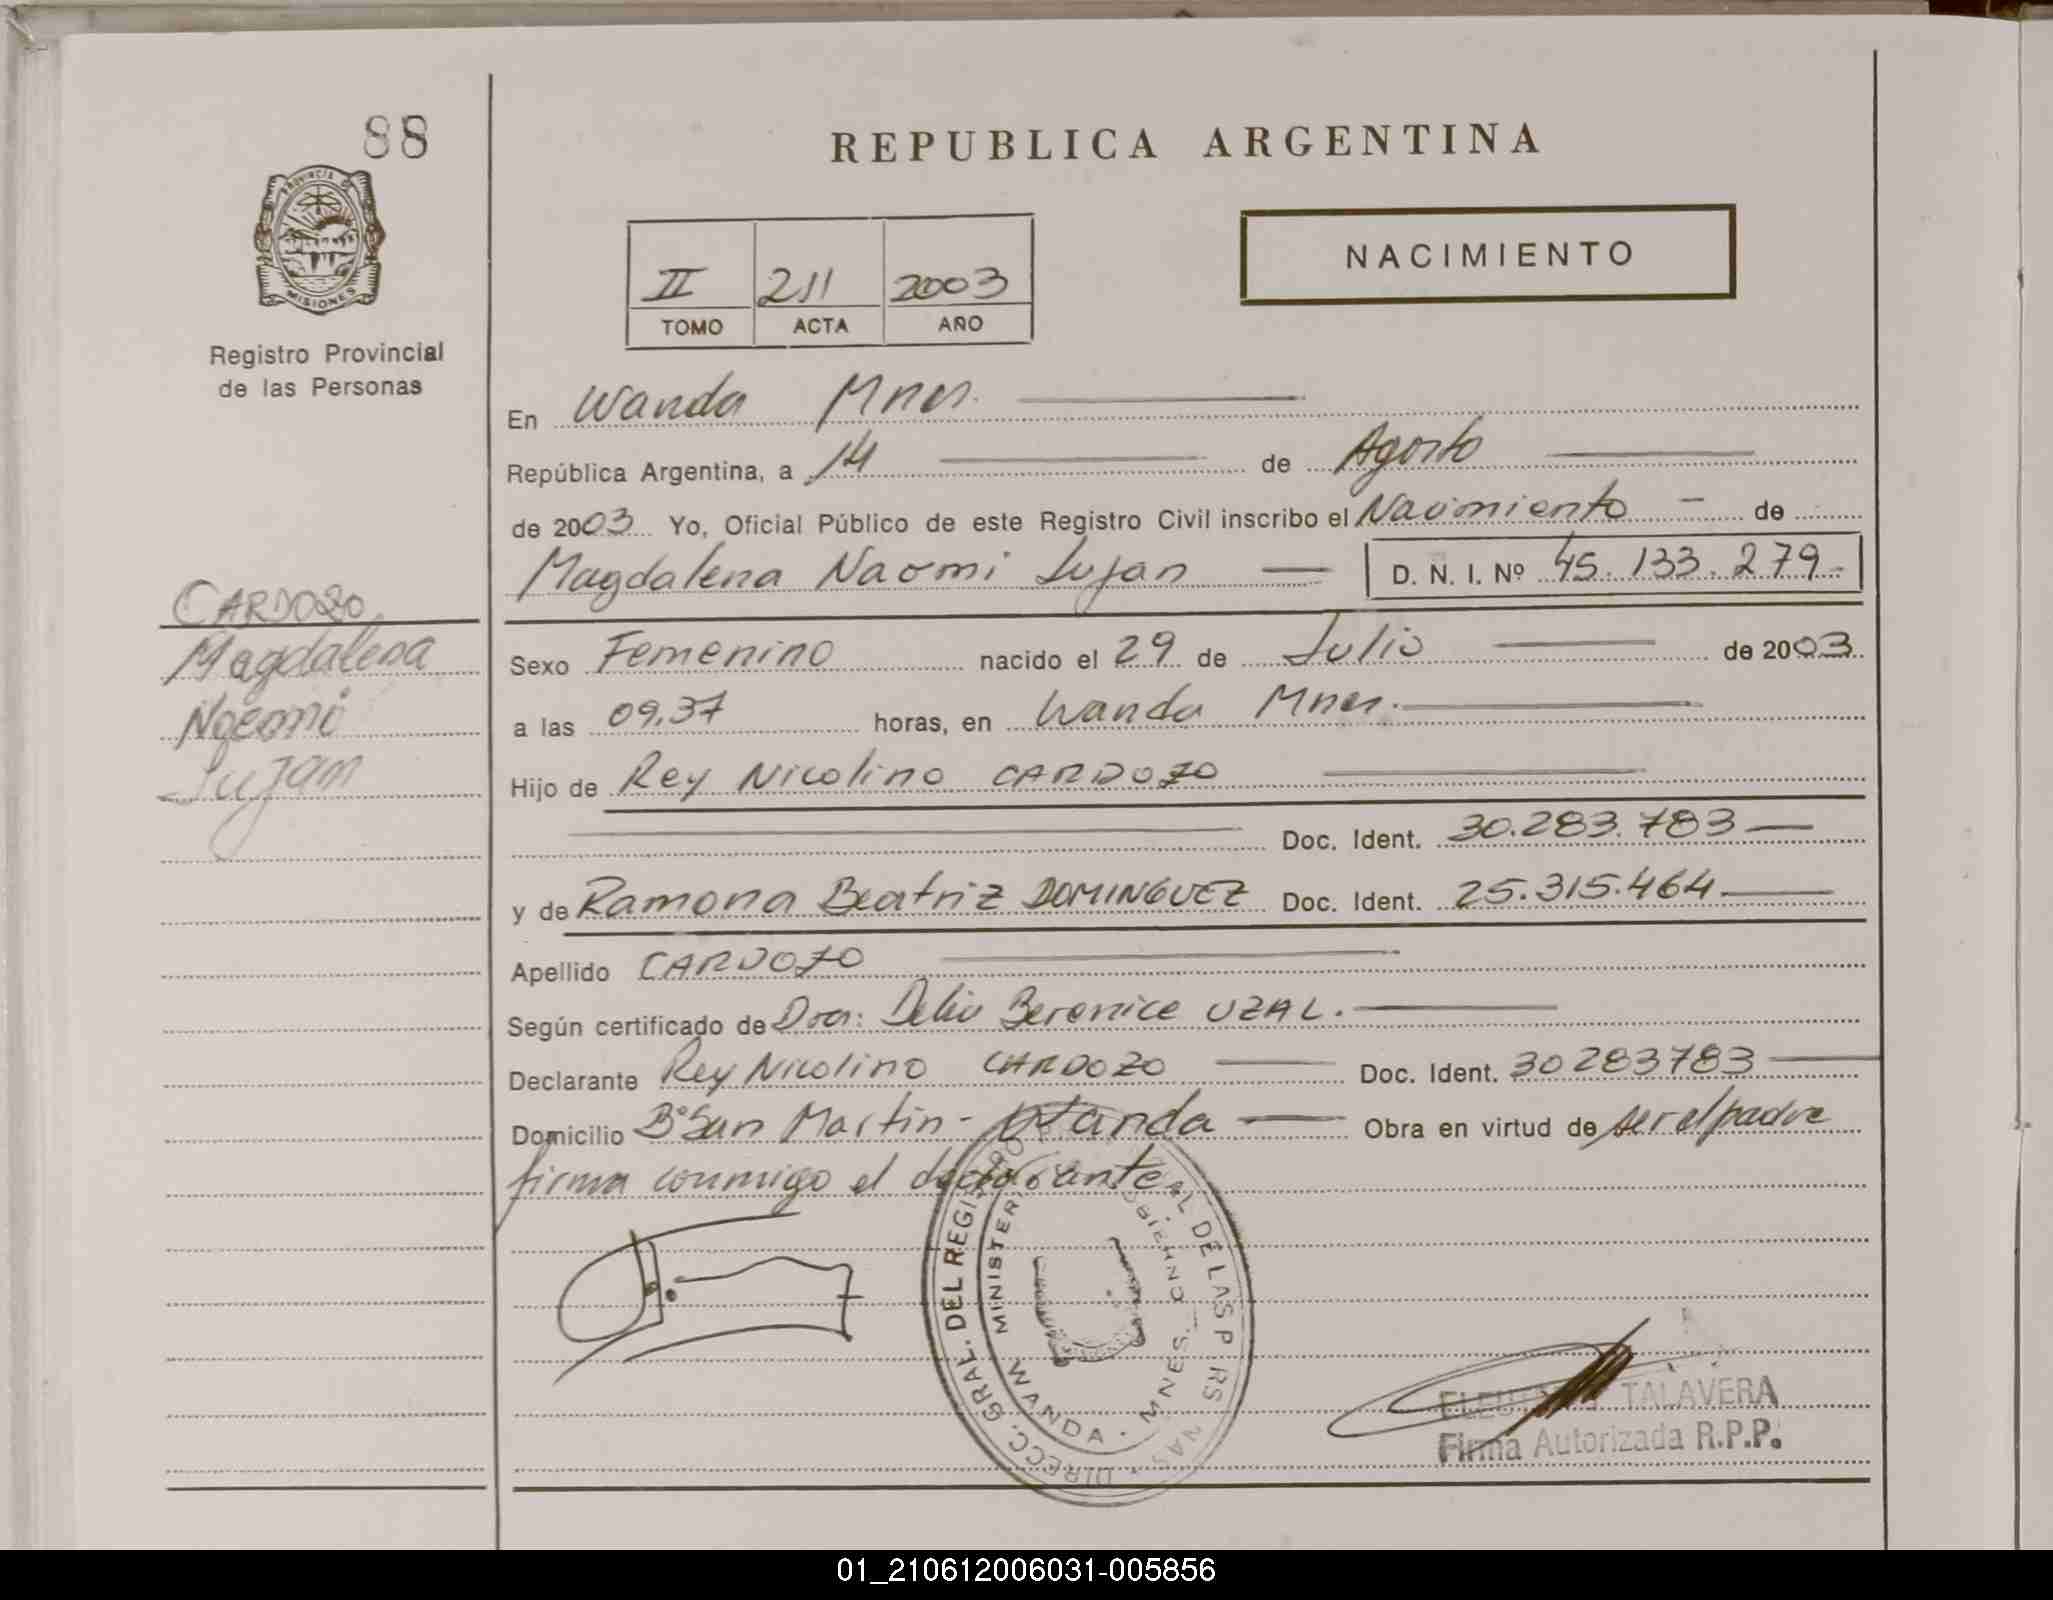 88
REPUBLICA ARGENTINA
PROVINCIA DE
MISIONES
Registro Provincial
de las Personas
II 211 2003
TOMO ACTA AÑO
NACIMIENTO
En Wanda Mnes.
República Argentina, a 14 de Agosto
de 2003 Yo, Oficial Público de este Registro Civil inscribo el Nacimiento - de
Magdalena Naomi Lujan D. N. I. Nº 45.133.279-
CARDOZO
Magdalena
Noemi
Lujan
Sexo Femenino nacido el 29 de Julio de 2003
a las 09.37 horas, en Wanda Mnes.
Hijo de Rey Nicolino CARDOZO
Doc. Ident. 30.283.783
y de Ramona Beatriz DOMINGUEZ Doc. Ident. 25.315.464
Apellido CARDOZO
Según certificado de Dra: Delia Berenice UZAL.
Declarante Rey Nicolino CARDOZO Doc. Ident. 30283783
Domicilio Bº San Martin - Wanda Obra en virtud de ser el padre
firma conmigo el declarante
DIRECC. GRAL. DEL REGISTRO DE LAS P RS NAS
MINISTER
WANDA . MNES.
TALAVERA
Firma Autorizada R.P.P.
01_210612006031-005856